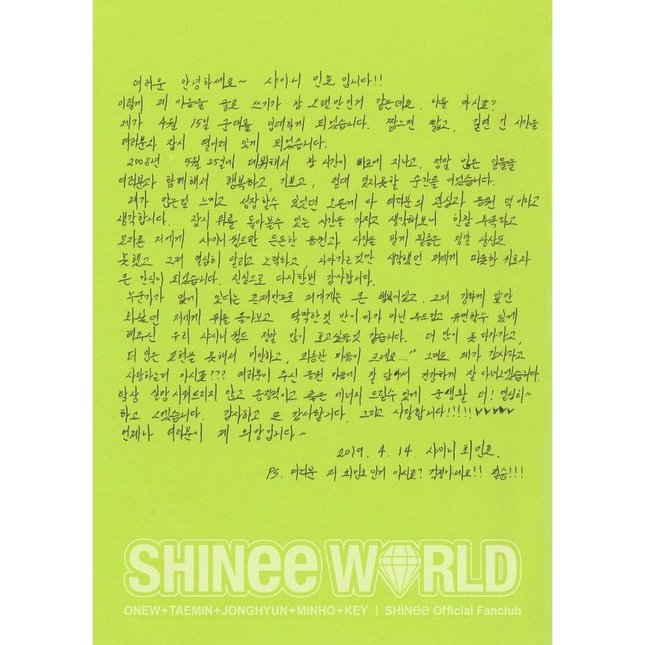 여러분 안녕하세요~ 샤이니 민호 입니다!!
이렇게 제 마음을 글로 쓰기가 참 오랜만인거 같은데요. 다들 아시죠?
제가 4월 15일 군대를 입대하게 되었습니다. 짧으면 짧고, 길면 긴 시간을
여러분과 잠시 떨어져 있게 되었습니다.
2008년 5월 25일에 데뷔해서 참 시간이 빠르게 지나고, 정말 많은 일들을
여러분과 함께해서 행복하고, 기쁘고, 절대 잊지못할 순간을 여겼습니다.
제가 많은걸 느끼고 성장할수 있었던 모든게 다 여러분의 관심과 응원 덕이라고
생각합니다. 잠시 뒤를 돌아볼수 있는 시간을 가지고 생각해보니 한참 부족하고
모자른 저에게 샤이니월드란 든든한 응원과 사랑을 받게 될줄은 정말 상상도
못했고 그저 열심히 달리고 노력하고, 나아가는것만 생각했던 저에게 따뜻한 치료와
큰 안식이 되었습니다. 진심으로 다시한번 감사합니다.
누군가 옆에 있다는 존재만으로 저에게는 큰 행복이었고, 그저 강하게 앞만
봐왔던 저에게 뒤를 돌아보고 딱딱한것 만이 아닌 부드럽고 유연할수 있게
해주신 우리 샤이니월드 정말 많이 보고싶을것 같습니다. 더 많이 못다가가고,
더 많은 표현을 못해서 미안하고, 죄송한 마음이 크네요...^^ 그래도 제가 감사하고
사랑하는거 아시죠??? 여러분이 주신 응원 마음에 잘 담아서 건강하게 잘 다녀오겠습니다.
항상 실망시켜드리지 않고 긍정적이고 좋은 에너지 드릴수 있게 군생활 더! 열심히~
하고 오겠습니다. 감사하고 또 감사합니다. 그리고 사랑합니다!!!!!♥♥♥♥♥
언제나 여러분이 제 희망입니다~
2019. 4. 14 샤이니 최민호.
PS. 여러분 저 최민호인거 아시죠? 걱정마세요!! 필승!!!
SHINee WORLD
ONEW+TAEMIN+JONGHYUN+MINHO+KEY | SHINee Official Fanclub